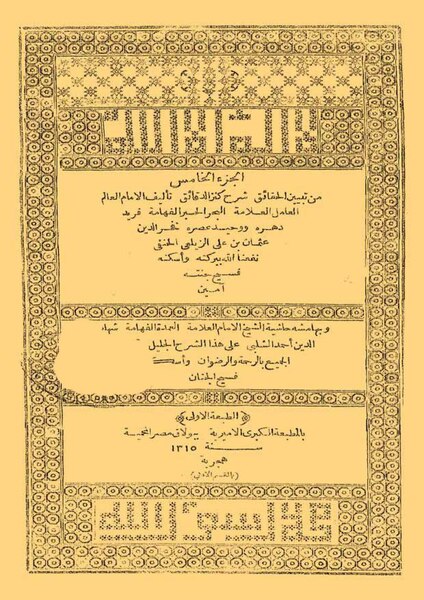 لا إله إلا الله
الجزء الخامس
من تبيين الحقائق شرح كنز الدقائق تأليف الامام العالم
العامل العلامة البحر الحبر الفهامة فريد
دهره ووحيد عصره فخر الدين
عثمان بن على الزيلعى الحنفى
نفعنا الله ببركته وأسكنه
فسيح جنته
آمين
وبهامشه حاشية الشيخ الامام العلامة العمدة الفهامة شهاب
الدين أحمد الشلبى على هذا الشرح الجليل
الجميع بالرحمة والرضوان وأسكنهم
فسيح الجنان
﴿الطبعة الاولى﴾
بالمطبعة الكبرى الاميرية ببولاق مصر المحمية
سنة ١٣١٥
هجرية
(بالقسم الادبى)
محمد رسول الله